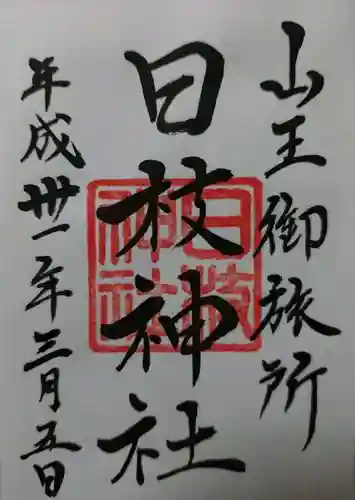 山王御旅所
日枝神社
年成卅一年三月五日
日枝神社